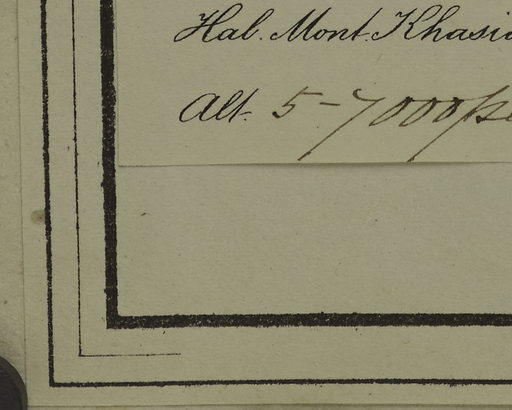 Hal. Mont. Khasia
Alt. 5-7000 pe